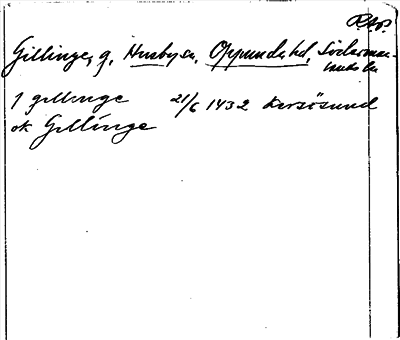 R.A.P.
Gillinge, g, Husby sn, Oppunda hd, Söderman-
lands län
J gillinge 21/6 1432 Korsösund
ok Gillinge